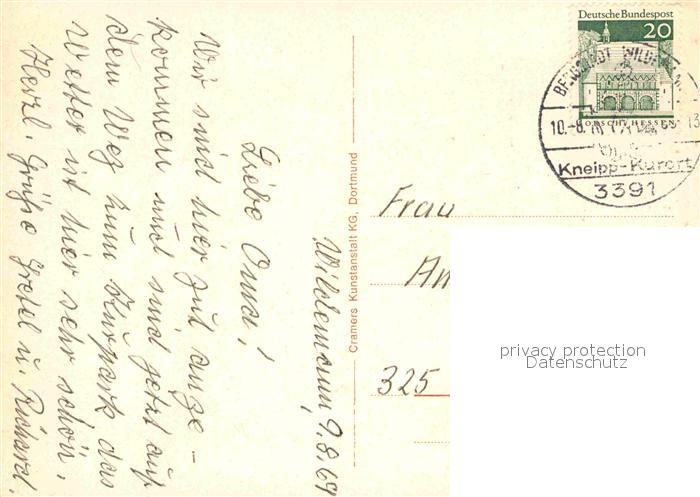 Wildemann, 9.8.69
Liebe Oma!
Wir sind hier gut ange-
kommen und sind jetzt auf
dem Weg zum Kurpark das
Wetter ist hier sehr schön.
Herzl. Grüße Gretel u. Richard.
Cramers Kunstanstalt KG, Dortmund
Deutsche Bundespost
20
LORSCH/HESSEN
BERGSTADT WILDEMANN
10.-8.
13
Kneipp-Kurort
3391
Frau
An
325
privacy protection
Datenschutz